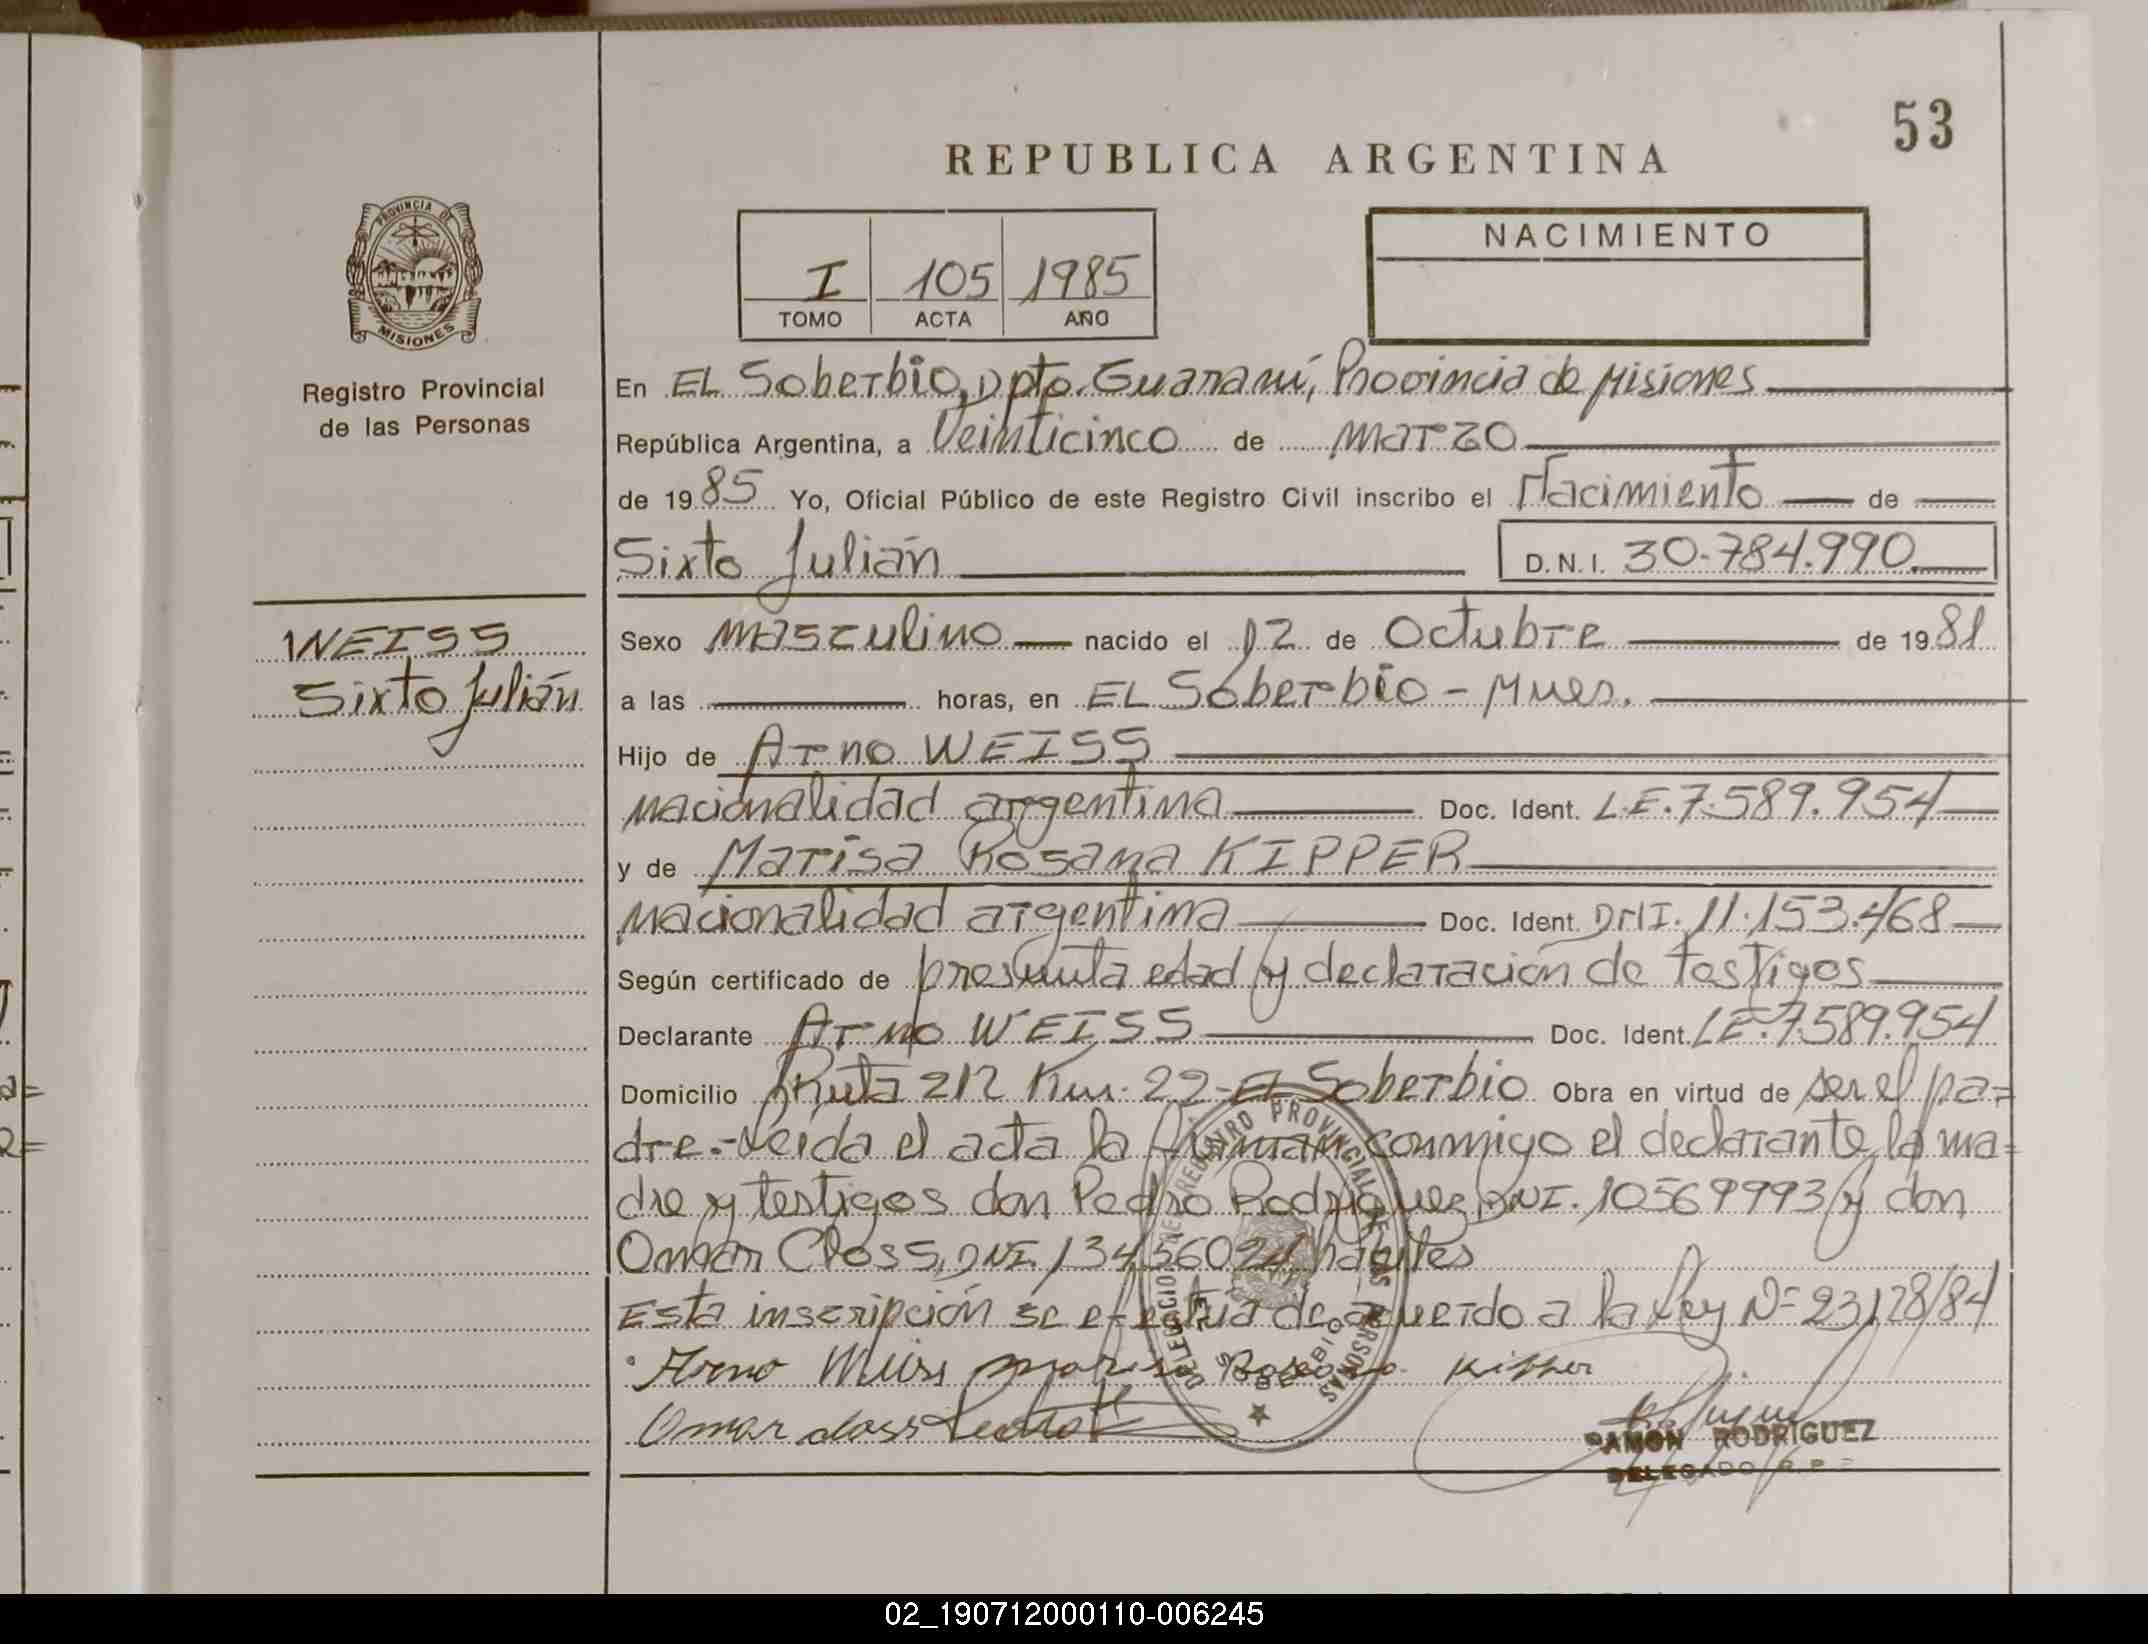 53
REPUBLICA ARGENTINA
PROVINCIA DE
MISIONES
Registro Provincial
de las Personas
I 105 1985
TOMO ACTA AÑO
NACIMIENTO
En EL Soberbio, Dpto. Guaraní, Provincia de Misiones
República Argentina, a Veinticinco de marzo
de 1985 Yo, Oficial Público de este Registro Civil inscribo el Nacimiento de
Sixto Julián D.N.I. 30.784.990
WEISS
Sixto Julián
Sexo masculino nacido el 12 de Octubre de 1981
a las horas, en EL Soberbio - Mnes.
Hijo de Arno WEISS
nacionalidad argentina Doc. Ident. L.E. 7.589.954
y de Marisa Rosana KIPPER
nacionalidad argentina Doc. Ident. DNI. 11.153.468
Según certificado de presunta edad y declaración de testigos
Declarante Arno WEISS Doc. Ident. LE. 7.589.954
Domicilio Ruta 212 Km. 22 - EL Soberbio Obra en virtud de ser el pa=
dre.- Leida el acta la firman conmigo el declarante, la ma=
dre y testigos don Pedro Rodriguez, DNI. 10569993 y don
Omar Closs, DNI. 13456024 hábiles
Esta inscripción se efectua de acuerdo a la Ley Nº 23128/84
Arno Weiss Marisa Rosana Kipper
Omar Closs
DELEGACION REGISTRO PROVINCIAL DE LAS PERSONAS
SOBERBIO
RAMON RODRIGUEZ
DELEGADO R. P.
02_190712000110-006245